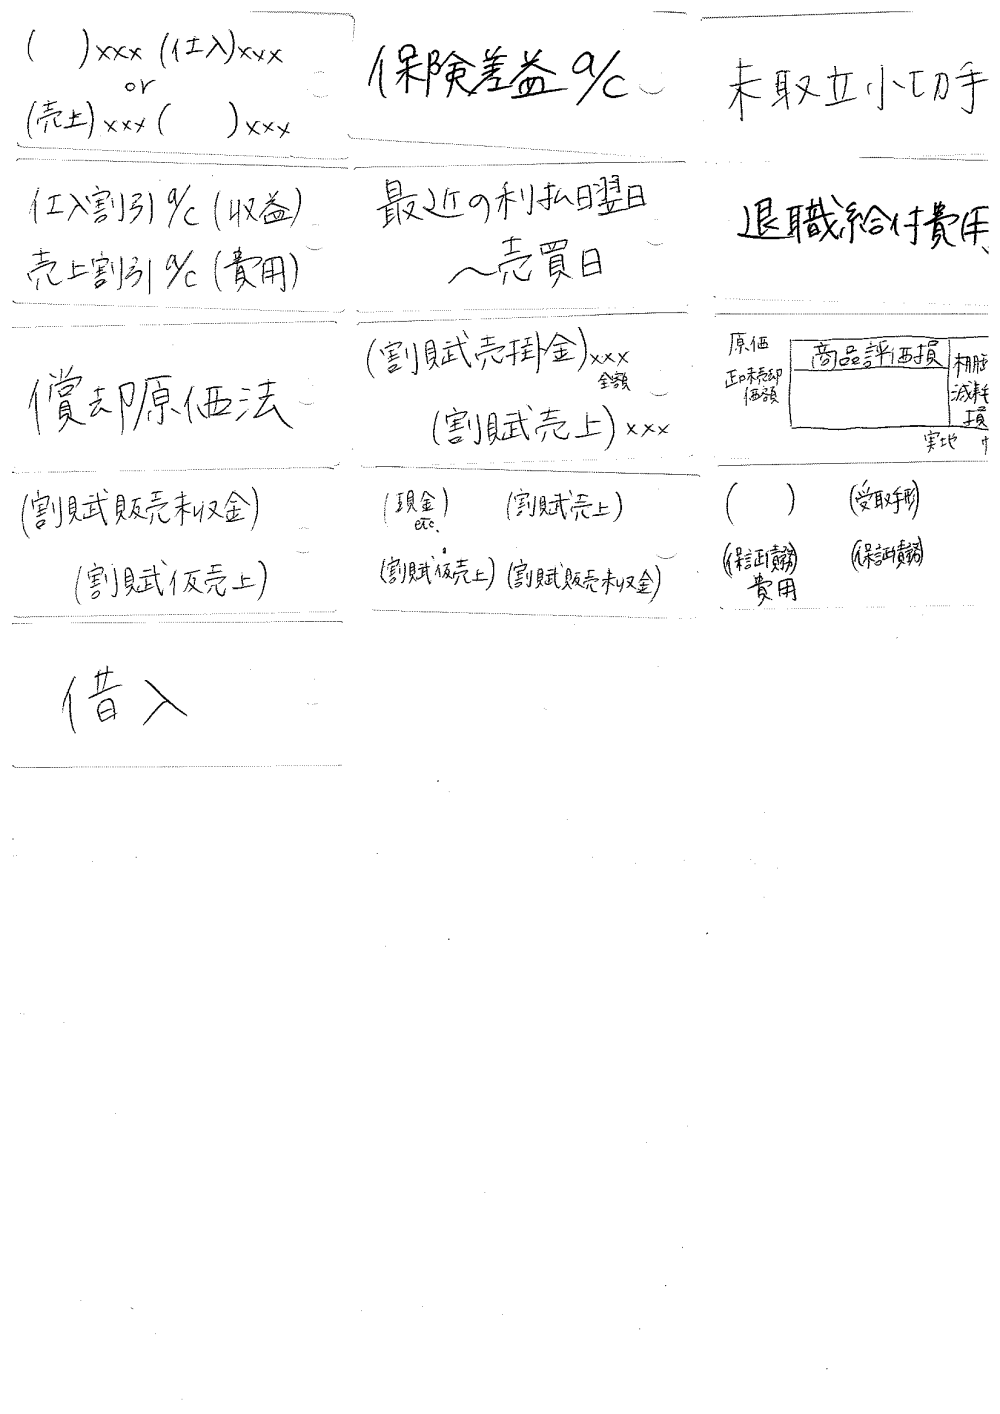 (　)xxx (仕入)xxx
or
(売上)xxx (　)xxx
保険差益 a/c
未取立小切手
仕入割引 a/c (収益)
売上割引 a/c (費用)
最近の利払日翌日
〜売買日
退職給付費用
償却原価法
(割賦売掛金)xxx
全額
(割賦売上)xxx
原価
正味売却
価額
商品評価損
棚卸
減耗
損
実地
(割賦販売未収金)
(割賦仮売上)
(現金) (割賦売上)
etc.
(割賦仮売上) (割賦販売未収金)
(　) (受取手形)
(保証債務) (保証債務)
費用
借入